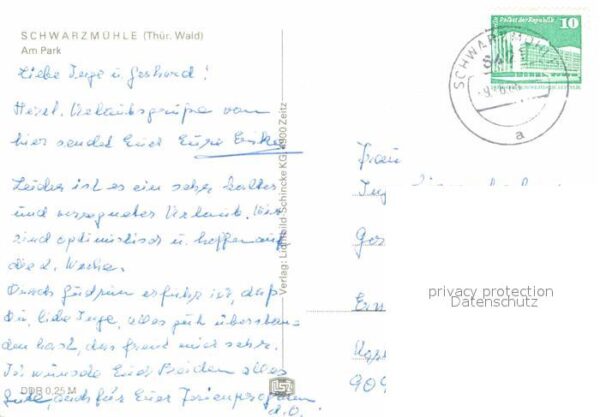 SCHWARZMÜHLE (Thür. Wald)
Am Park
Liebe Inge u. Gerhard!
Herzl. Urlaubsgrüße von
hier sendet Euch Eure
Leider ist es ein sehr kaltes
und verregneter Urlaub. Wir
sind optimistisch u. hoffen auf
die 2. Woche.
Durch Gudrun erfuhr ich, daß
Du, liebe Inge, alles gut überstan-
den hast, das freut mich sehr.
Ich wünsche Euch Beiden alles
Gute, auch für Euer
d. O.
DDR 0,25 M
Verlag: Lichtbild-Schincke KG, 4900 Zeitz
Palast der Republik
10
SCHWARZMÜHLE
a
Frau
privacy protection
Datenschutz